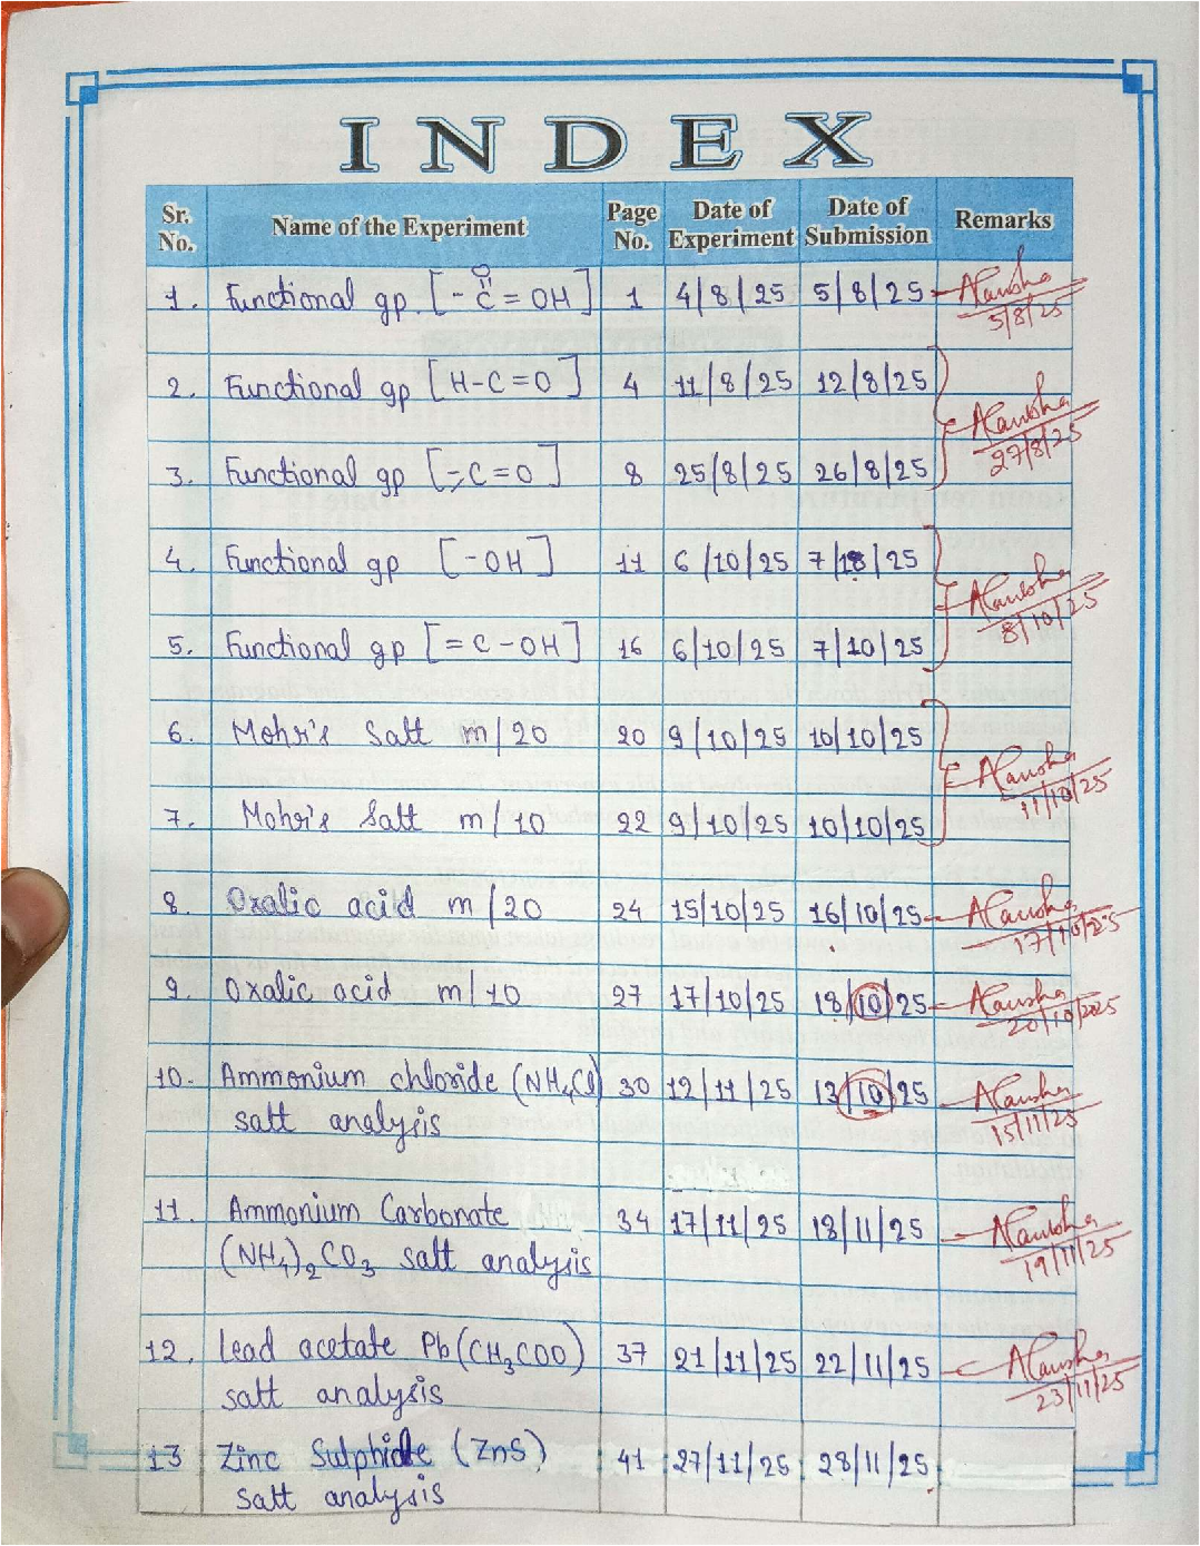 INDEX
Sr. No. Name of the Experiment Page No. Date of Experiment Date of Submission Remarks
1. Functional gp. [-C=OH] 1 4/8/25 5/8/25
O
5/8/25
2. Functional gp [H-C=O] 4 11/8/25 12/8/25
27/8/25
3. Functional gp [>C=O] 8 25/8/25 26/8/25
4. Functional gp [-OH] 11 6/10/25 7/10/25
8/10/25
5. Functional gp [=C-OH] 16 6/10/25 7/10/25
6. Mohr's Salt m/20 20 9/10/25 10/10/25
11/10/25
7. Mohr's Salt m/10 22 9/10/25 10/10/25
8. Oxalic acid m/20 24 15/10/25 16/10/25
17/10/25
9. Oxalic acid m/10 27 17/10/25 18/10/25
20/10/2025
10. Ammonium chloride (NH4Cl) 30 12/11/25 13/10/25
salt analysis
15/11/25
11. Ammonium Carbonate 34 17/11/25 18/11/25
(NH4)2CO3 salt analysis
19/11/25
12. Lead acetate Pb(CH3COO) 37 21/11/25 22/11/25
salt analysis
23/11/25
13 Zinc Sulphide (ZnS) 41 27/11/25 28/11/25
salt analysis